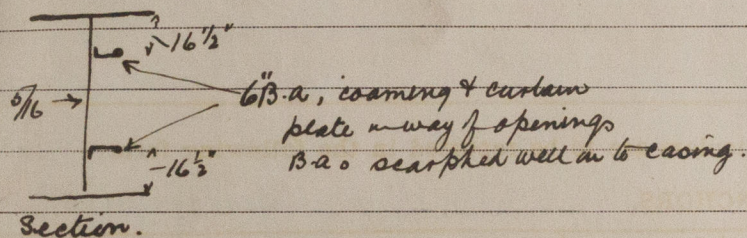 16 1/2"
5/16
6" B.a, coaming & curtain
plate in way of openings
B.a.s scarphed well in to casing.
16 1/2"
Section.